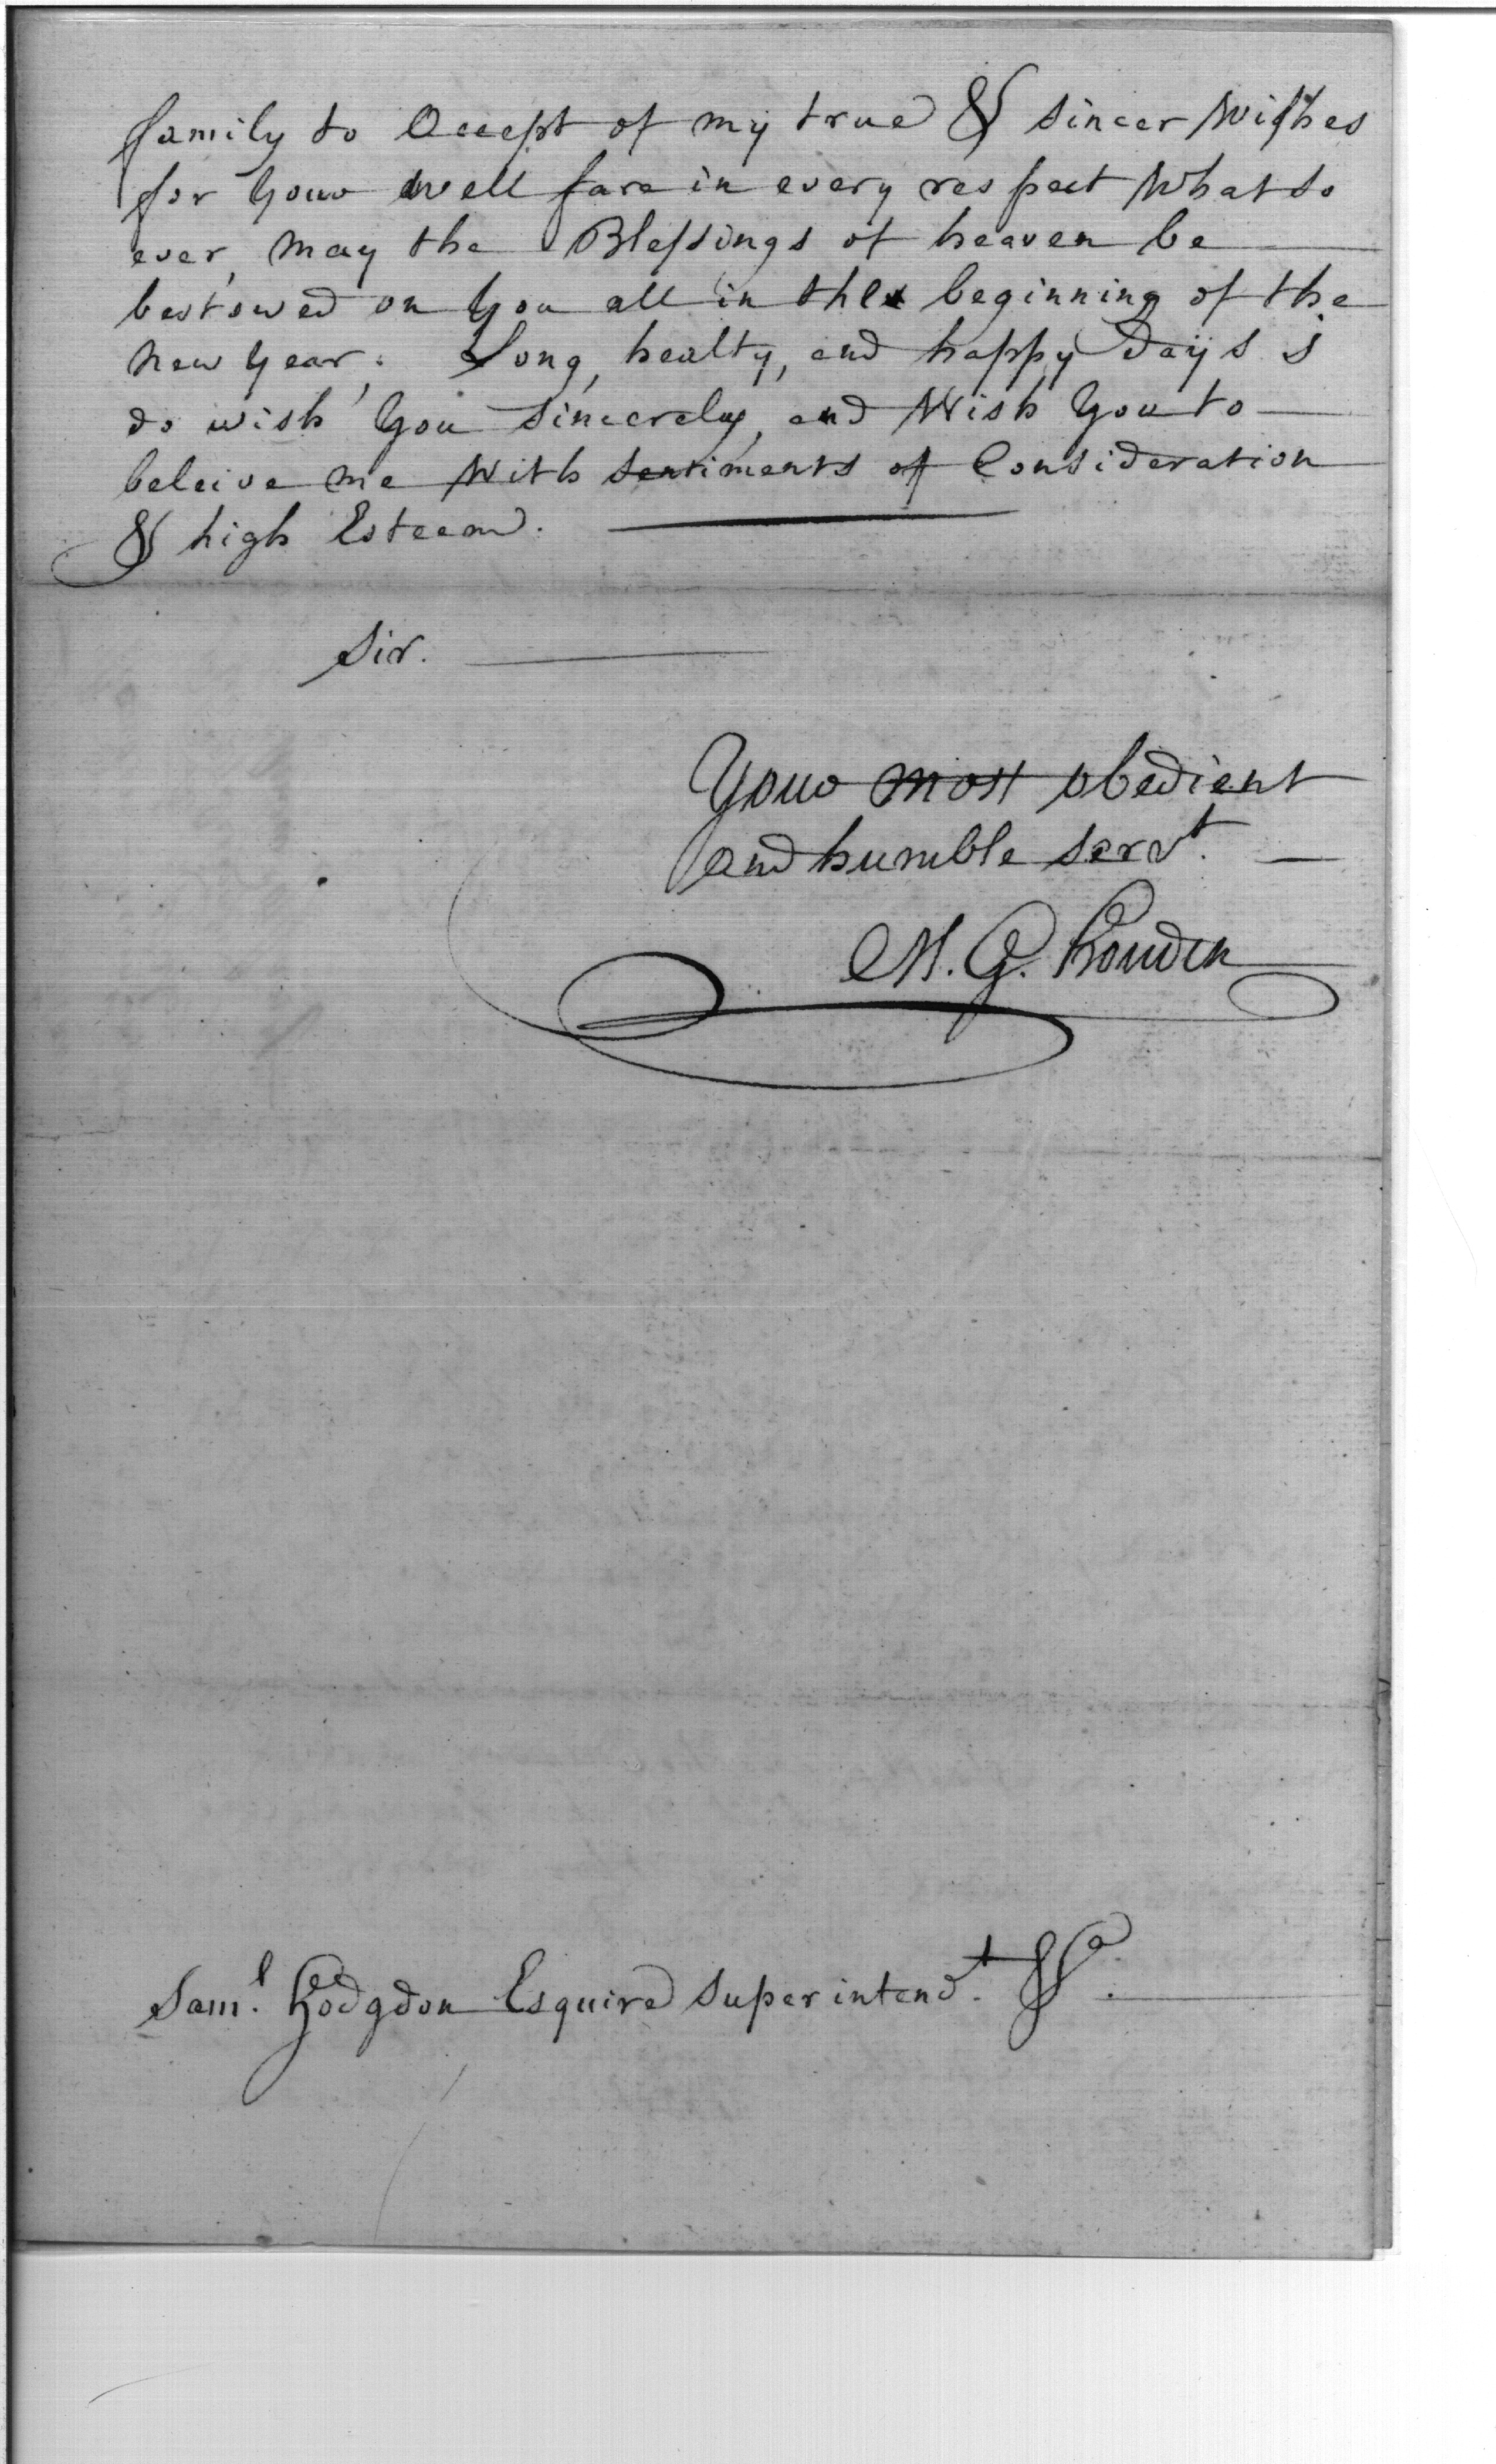 family to Accept of my true & sincer Wishes
for Your well fare in every respect Whatso
ever, may the Blessings of heaven be
bestowed on You all in the beginning of the
new Year. Long, healty, and happy Days I
do wish You sincerely, and Wish You to
beleive me With sentiments of Consideration
& high Esteem.
Sir.
Your most obedient
and humble servt.
M. G. Houdin
Saml. Hodgdon Esquire superintendt. &ca.